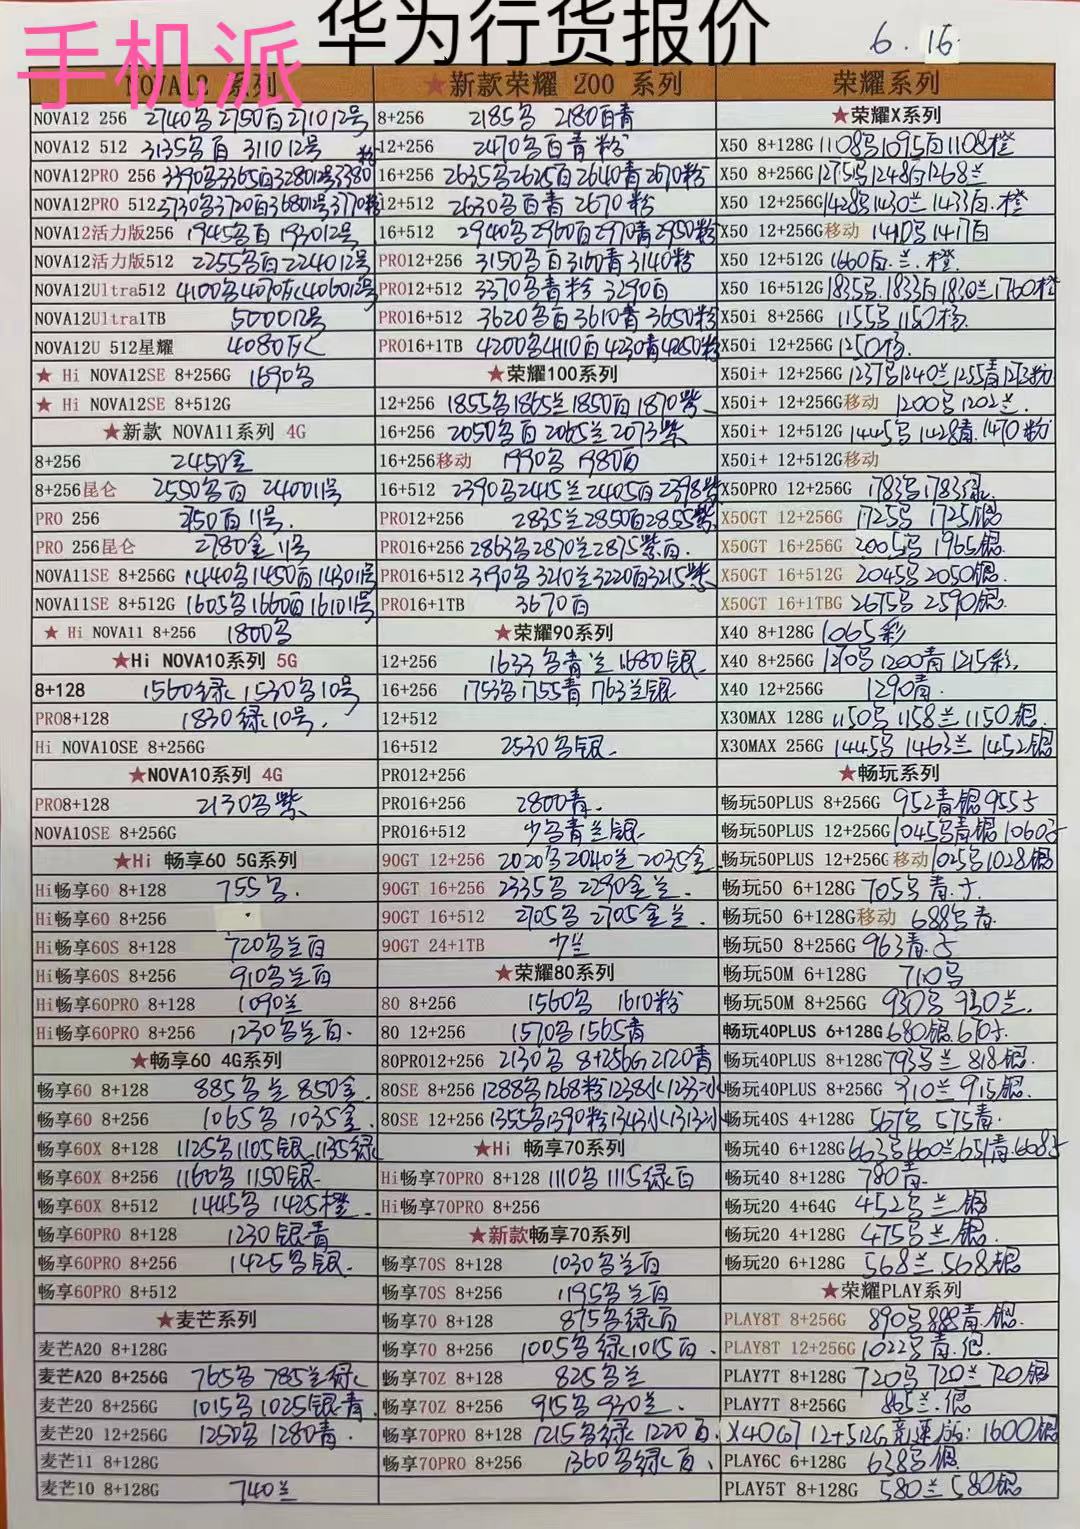 华为行货报价
手机派
6.16
NOVA12 系列
NOVA12 256 2740 2750白 2710 12号
NOVA12 512 3135 白 3110 12号
NOVA12PRO 256 3390 3365白 3280 12号 3380粉
NOVA12PRO 512 3730 3720白 3680 12号 3770粉
NOVA12活力版256 1945 白 1930 12号
NOVA12活力版512 2255 白 2240 12号
NOVA12Ultra512 4100 4070灰 4060 12号
NOVA12Ultra1TB 5000 12号
NOVA12U 512星耀 4080灰
★ Hi NOVA12SE 8+256G 1690
★ Hi NOVA12SE 8+512G
★新款 NOVA11系列 4G
8+256 2450金
8+256昆仑 2550 白 2400 11号
PRO 256 白 11号.
PRO 256昆仑 2780金 11号
NOVA11SE 8+256G 1440 1450白 1430 11号
NOVA11SE 8+512G 1605 1660白 1610 11号
★ Hi NOVA11 8+256 1800
★Hi NOVA10系列 5G
8+128 1560绿 1530 10号
PRO8+128 1830绿 10号.
Hi NOVA10SE 8+256G
★NOVA10系列 4G
PRO8+128 2130 紫
NOVA10SE 8+256G
★Hi 畅享60 5G系列
Hi畅享60 8+128 755
Hi畅享60 8+256
Hi畅享60S 8+128 720 兰白
Hi畅享60S 8+256 910 兰白
Hi畅享60PRO 8+128 1090兰
Hi畅享60PRO 8+256 1230 兰白.
★畅享60 4G系列
畅享60 8+128 885 兰 850金.
畅享60 8+256 1065 1035金.
畅享60X 8+128 1125 1105银 1135绿
畅享60X 8+256 1160 1150银
畅享60X 8+512 1445 1425橙.
畅享60PRO 8+128 1230银青
畅享60PRO 8+256 1425 银.
畅享60PRO 8+512
★麦芒系列
麦芒A20 8+128G
麦芒A20 8+256G 765 785兰绿
麦芒20 8+256G 1015 1025银青.
麦芒20 12+256G 1250 1280青.
麦芒11 8+128G
麦芒10 8+128G 740兰
★新款荣耀 200 系列
8+256 2185 2180白青
12+256 2470 白青粉
16+256 2635 2625白 2640青 2670粉
12+512 2630 白青 2670粉
16+512 2940 2960白 2970青 2950粉
PRO12+256 3150 白 3160青 3140粉
PRO12+512 3370 青粉 3290白
PRO16+512 3620 白 3610青 3650粉
PRO16+1TB 4200 4110白 4230青 4250粉
★荣耀100系列
12+256 1855 1865兰 1850白 1870紫
16+256 2050 白 2065兰 2073紫
16+256移动 1990 1980白
16+512 2390 2415兰 2405白 2398紫
PRO12+256 2835兰 2850白 2855紫
PRO16+256 2863 2870兰 2875紫白.
PRO16+512 3190 3210兰 3220白 3215紫
PRO16+1TB 3670白
★荣耀90系列
12+256 1633 青兰 1680银
16+256 1753 1755青 1763兰银
12+512
16+512 2530 银.
PRO12+256
PRO16+256 2800青.
PRO16+512 少 青兰银
90GT 12+256 2020 2040兰 2035金
90GT 16+256 2335 2290金兰.
90GT 16+512 2705 2705金兰.
90GT 24+1TB 少兰
★荣耀80系列
80 8+256 1560 1610粉
80 12+256 1570 1565青
80PRO12+256 2130 8+256G 2120青
80SE 8+256 1288 1268粉 1238水 1233冰
80SE 12+256 1355 1390粉 1343水 1313冰
★Hi 畅享70系列
Hi畅享70PRO 8+128 1110 1115绿白
Hi畅享70PRO 8+256
★新款畅享70系列
畅享70S 8+128 1030 兰白
畅享70S 8+256 1195 兰白
畅享70 8+128 875 绿白
畅享70 8+256 1005 绿 1015白.
畅享70Z 8+128 825 兰
畅享70Z 8+256 915 930兰.
畅享70PRO 8+128 1215 绿 1220白.
畅享70PRO 8+256 1360 绿白.
荣耀系列
★荣耀X系列
X50 8+128G 1108 1095白 1108橙
X50 8+256G 1275 1248白 1268兰
X50 12+256G 1428 1430兰 1433白.橙
X50 12+256G移动 1410 1417白
X50 12+512G 1660白.兰.橙.
X50 16+512G 1835 1833白 1830兰 1760橙
X50i 8+256G 1155 1150粉.
X50i 12+256G 1250粉.
X50i+ 12+256G 1237 1240兰 1255青 1273粉
X50i+ 12+256G移动 1200 1202兰.
X50i+ 12+512G 1445 1428青 1470粉
X50i+ 12+512G移动
X50PRO 12+256G 1783 1783绿
X50GT 12+256G 1725 1725银
X50GT 16+256G 2005 1965银.
X50GT 16+512G 2045 2050银.
X50GT 16+1TBG 2675 2590银.
X40 8+128G 1065彩
X40 8+256G 1210 1200青 1215彩
X40 12+256G 1290青.
X30MAX 128G 1150 1158兰 1150银.
X30MAX 256G 1445 1463兰 1452银
★畅玩系列
畅玩50PLUS 8+256G 952青银 955
畅玩50PLUS 12+256G 1045 青银 1060
畅玩50PLUS 12+256G移动 1025 1028银
畅玩50 6+128G 705 青.
畅玩50 6+128G移动 688 青
畅玩50 8+256G 963青.
畅玩50M 6+128G 710
畅玩50M 8+256G 930 930兰.
畅玩40PLUS 6+128G 680银 670
畅玩40PLUS 8+128G 793 兰 818银.
畅玩40PLUS 8+256G 910兰 915银.
畅玩40S 4+128G 567 575青.
畅玩40 6+128G 660兰 651青
畅玩40 8+128G 780青.
畅玩20 4+64G 452 兰 银
畅玩20 4+128G 475 兰银.
畅玩20 6+128G 568兰 568银
★荣耀PLAY系列
PLAY8T 8+256G 890 888青.银.
PLAY8T 12+256G 1022 青.银.
PLAY7T 8+128G 720 720兰 720银
PLAY7T 8+256G 865兰.银
X40GT 12+512G 竞速版: 1600银
PLAY6C 6+128G 638 银.
PLAY5T 8+128G 580兰 580银